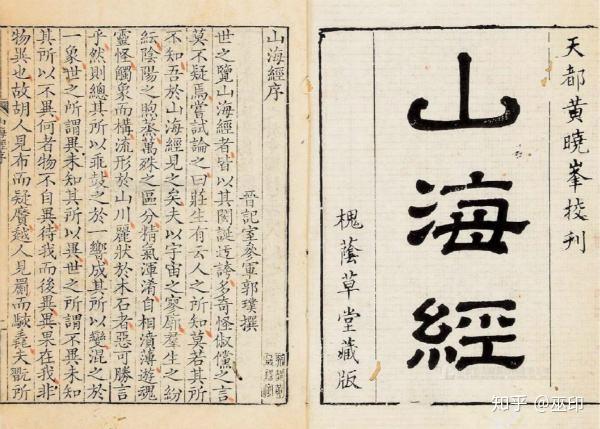 天都黃曉峯挍刊
山海經
槐蔭草堂藏版
山海經序
晉記室參軍郭璞撰
世之覽山海經者皆以其閎誕迂誇多奇怪俶儻之言
莫不疑焉嘗試論之曰莊生有云人之所知莫若其所
不知吾於山海經見之矣夫以宇宙之寥廓羣生之紛
紜陰陽之煦蒸萬殊之區分精氣渾淆自相濆薄遊魂
靈怪觸象而構流形於山川麗狀於木石者惡可勝言
乎然則總其所以乖鼓之於一響成其所以變混之於
一象世之所謂異未知其所以異世之所謂不異未知
其所以不異何者物不自異待我而後異異果在我非
物異也故胡人見布而疑黂越人見罽而駭毳夫翫所
知乎 @巫印